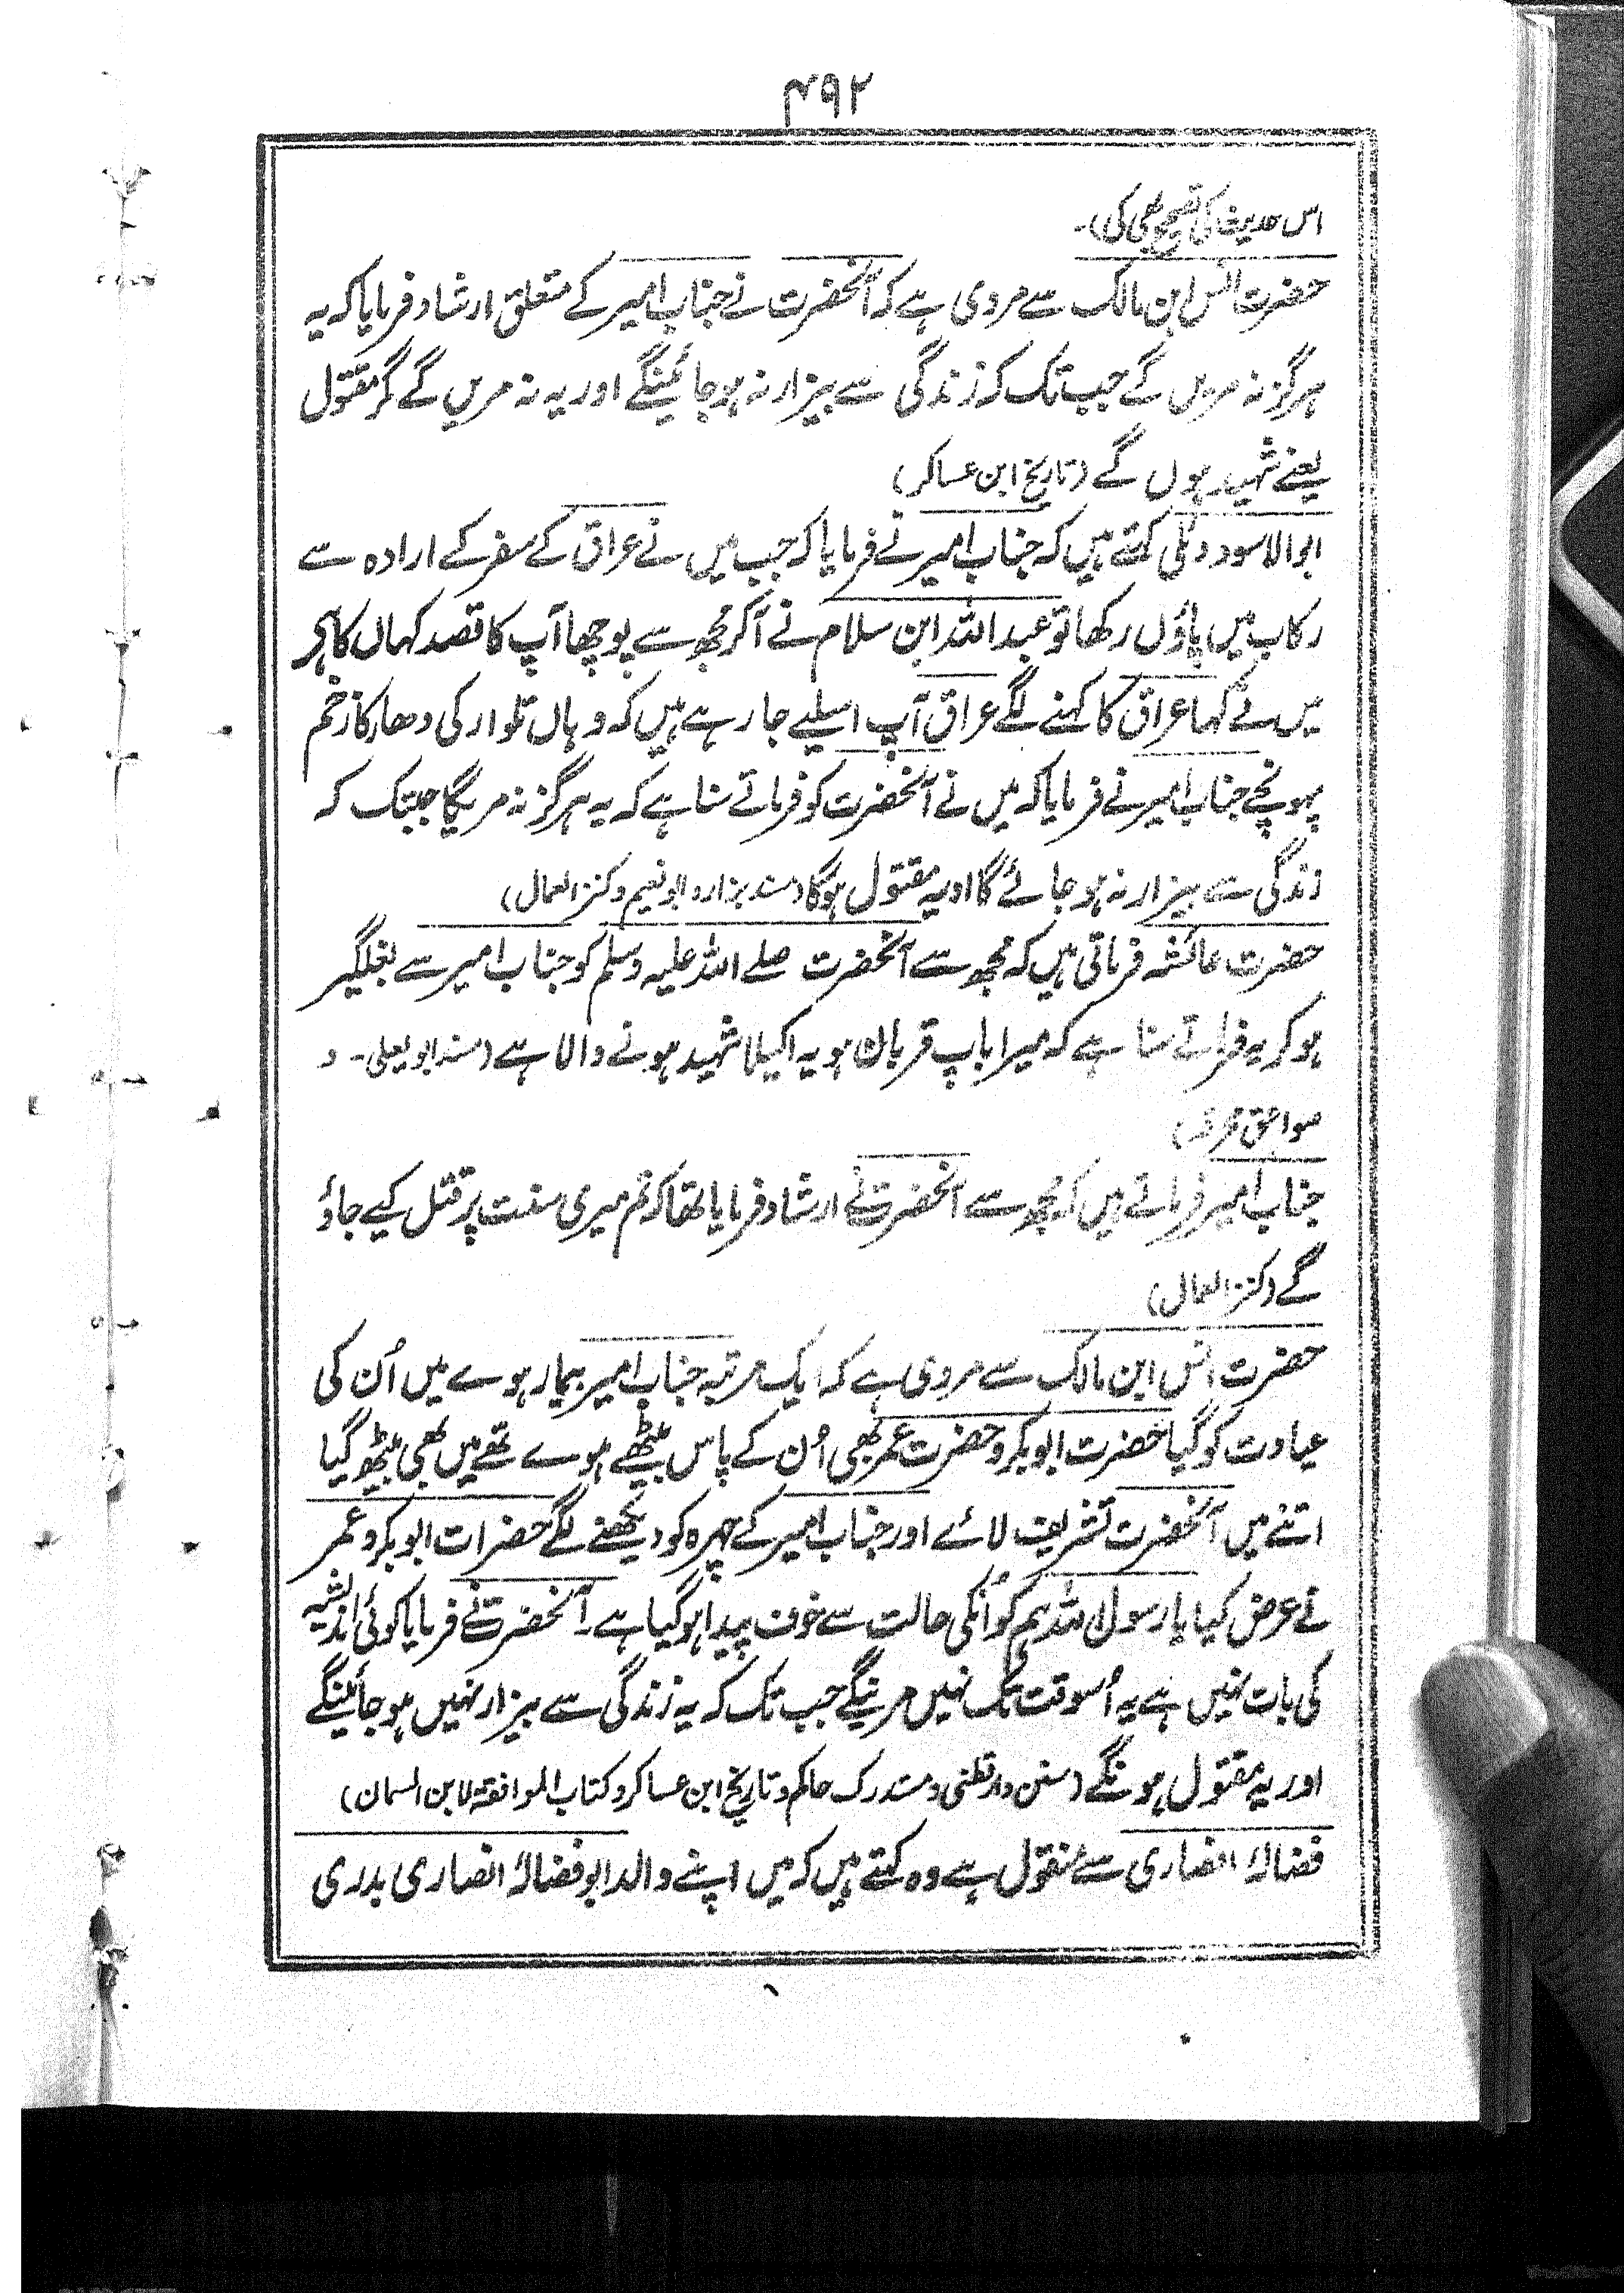 ۴۹۲
اس حدیث کی تصحیح بھی کی)۔
حضرت انس ابن مالک سے مروی ہے کہ آنحضرت نے جناب امیر کے متعلق ارشاد فرمایا کہ یہ
ہرگز نہ مریں گے جب تک کہ زندگی سے بیزار نہ ہو جائینگے اور یہ نہ مریں گے مگر مقتول
یعنے شہید ہوں گے (تاریخ ابن عساکر)
ابوالاسود دئلی کہتے ہیں کہ جناب امیر نے فرمایا کہ جب میں نے عراق کے سفر کے ارادہ سے
رکاب میں پاؤں رکھا تو عبداللہ ابن سلام نے آکر مجھ سے پوچھا آپ کا قصد کہاں کا ہی
میں نے کہا عراق کا کہنے لگے عراق آپ اسلیے جا رہے ہیں کہ وہاں تلوار کی دھار کا زخم
پہونچے جناب امیر نے فرمایا کہ میں نے آنحضرت کو فرماتے سنا ہے کہ یہ ہرگز نہ مریگا جبتک کہ
زندگی سے بیزار نہ ہو جائے گا اور یہ مقتول ہوگا (مسند بزار و ابو نعیم و کنز العمال)
حضرت عائشہ فرماتی ہیں کہ مجھ سے آنحضرت صلے اللہ علیہ وسلم کو جناب امیر سے بغلگیر
ہو کر یہ فرماتے سنا ہے کہ میرا باپ قربان ہو یہ اکیلا شہید ہونے والا ہے (مسند ابو یعلی۔ و
صواعق محرقہ)
جناب امیر فرماتے ہیں کہ مجھ سے آنحضرت نے ارشاد فرمایا تھا کہ تم میری سنت پر قتل کیے جاؤ
گے (کنز العمال)
حضرت انس ابن مالک سے مروی ہے کہ ایک مرتبہ جناب امیر بیمار ہوے میں اُن کی
عیادت کو گیا حضرت ابوبکر و حضرت عمر بھی اُن کے پاس بیٹھے ہوے تھے میں بھی بیٹھ گیا
اتنے میں آنحضرت تشریف لائے اور جناب امیر کے چہرہ کو دیکھنے لگے حضرات ابوبکر و عمر
نے عرض کیا یا رسول اللہ ہم کو اُنکی حالت سے خوف پیدا ہو گیا ہے۔ آنحضرت نے فرمایا کوئی اندیشہ
کی بات نہیں ہے یہ اُسوقت تک نہیں مرینگے جب تک کہ یہ زندگی سے بیزار نہیں ہو جائینگے
اور یہ مقتول ہونگے (سنن دارقطنی و مستدرک حاکم و تاریخ ابن عساکر و کتاب الموافقۃ لابن السمان)
فضالۂ انصاری سے منقول ہے وہ کہتے ہیں کہ میں اپنے والد ابو فضالۂ انصاری بدری